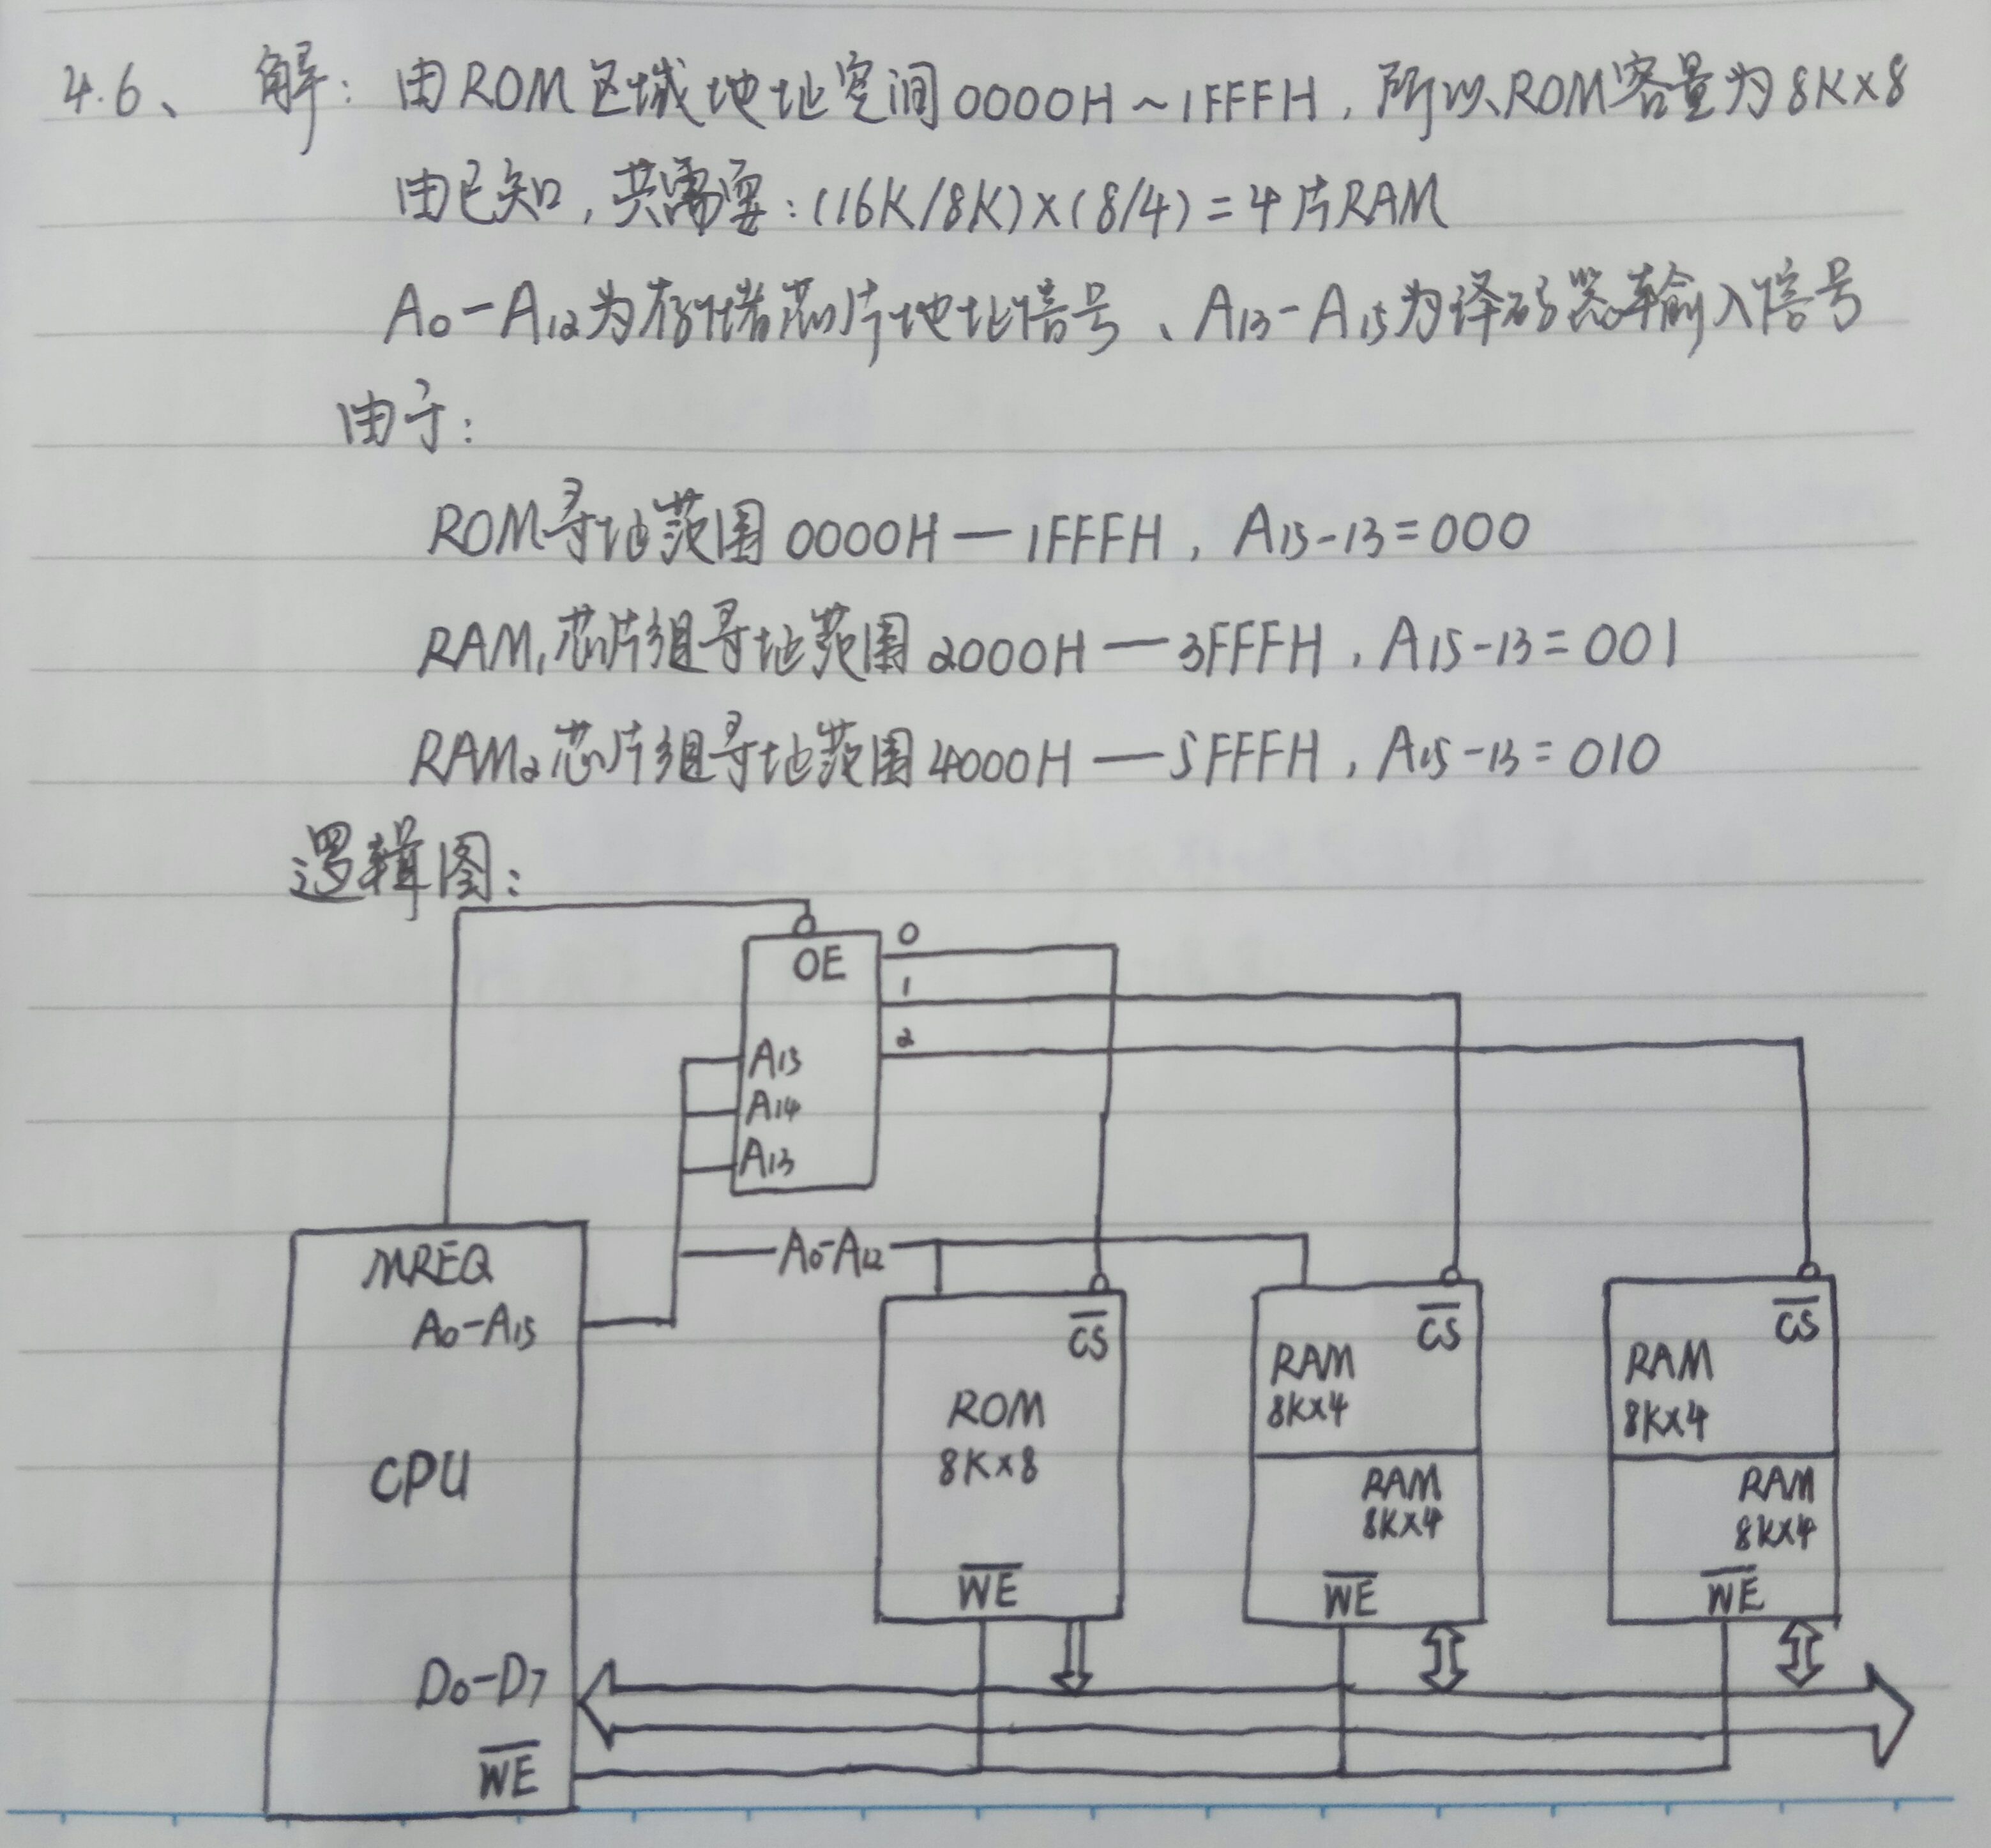 4.6、 解：由ROM区域地址空间0000H～1FFFH，所以ROM容量为8K×8
由已知，共需要：(16K/8K)×(8/4)=4片RAM
A0-A12为存储芯片地址信号、A13-A15为译码器输入信号
由于：
ROM寻址范围0000H—1FFFH，A15-13=000
RAM1芯片组寻址范围2000H—3FFFH，A15-13=001
RAM2芯片组寻址范围4000H—5FFFH，A15-13=010
逻辑图：
OE
0
1
2
A13
A14
A13
A0-A12
MREQ
A0-A15
CPU
D0-D7
WE
CS
ROM
8K×8
WE
CS
RAM
8K×4
RAM
8K×4
WE
CS
RAM
8K×4
RAM
8K×4
WE